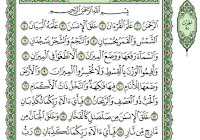 بِسْمِ اللَّهِ الرَّحْمَٰنِ الرَّحِيمِ
الرَّحْمَٰنُ ۝ عَلَّمَ الْقُرْآنَ ۝ خَلَقَ الْإِنسَانَ ۝ عَلَّمَهُ الْبَيَانَ ۝
الشَّمْسُ وَالْقَمَرُ بِحُسْبَانٍ ۝ وَالنَّجْمُ وَالشَّجَرُ يَسْجُدَانِ ۝
وَالسَّمَاءَ رَفَعَهَا وَوَضَعَ الْمِيزَانَ ۝ أَلَّا تَطْغَوْا فِي الْمِيزَانِ ۝
وَأَقِيمُوا الْوَزْنَ بِالْقِسْطِ وَلَا تُخْسِرُوا الْمِيزَانَ ۝ وَالْأَرْضَ
وَضَعَهَا لِلْأَنَامِ ۝ فِيهَا فَاكِهَةٌ وَالنَّخْلُ ذَاتُ الْأَكْمَامِ ۝
وَالْحَبُّ ذُو الْعَصْفِ وَالرَّيْحَانُ ۝ فَبِأَيِّ آلَاءِ رَبِّكُمَا تُكَذِّبَانِ
۝ خَلَقَ الْإِنسَانَ مِن صَلْصَالٍ كَالْفَخَّارِ ۝ وَخَلَقَ
الْجَانَّ مِن مَّارِجٍ مِّن نَّارٍ ۝ فَبِأَيِّ آلَاءِ رَبِّكُمَا تُكَذِّبَانِ ۝